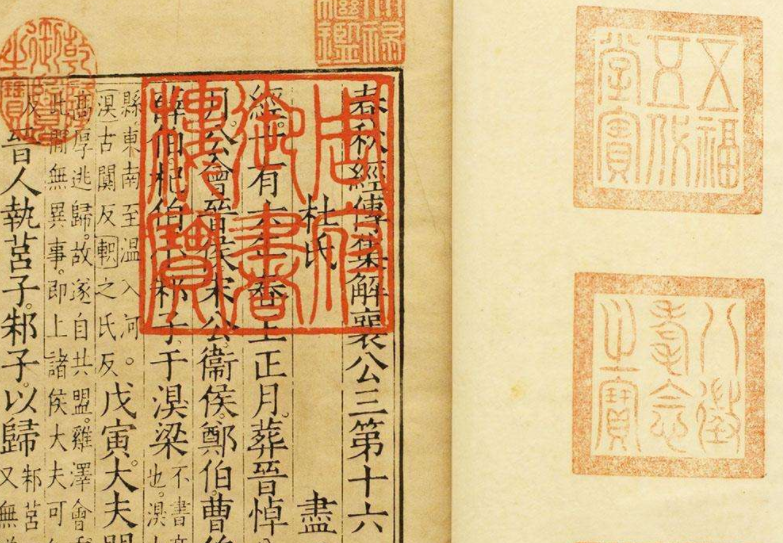 五福
五代
堂寶
八徵
耄念
之寶
天祿
繼鑑
周府
御書
樓寶
乾隆
御覽
之寶
春秋經傳集解襄公三第十六
杜氏 盡
經十有六年春王正月葬晉悼
月公會晉侯宋公衞侯鄭伯曹伯
薛伯杞伯小邾子于溴梁 不書
也。溴
縣東南至溫入河。
溴古闃反軹之氏反
戊寅。大夫
高厚逃歸。故遂自共盟。雞澤會
此間無異事。即上諸侯大夫可
晉人執莒子。邾子。以歸
邾莒
又無